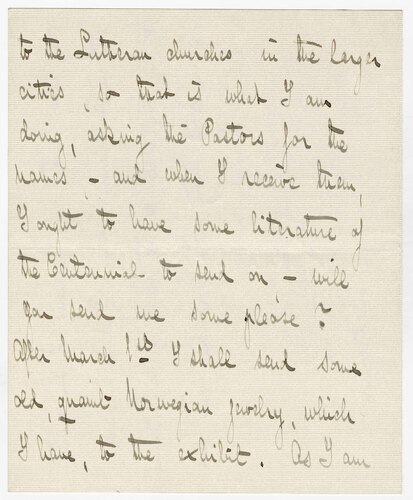 to the Lutheran churches in the larger
cities, so that is what I am
doing, asking the Pastors for the
names - and when I receive them,
I ought to have some literature of
the Centennial to send on, - will
you send me some please?
After March 1st I shall send some
old, quaint Norwegian jewelry, which
I have, to the exhibit. As I am